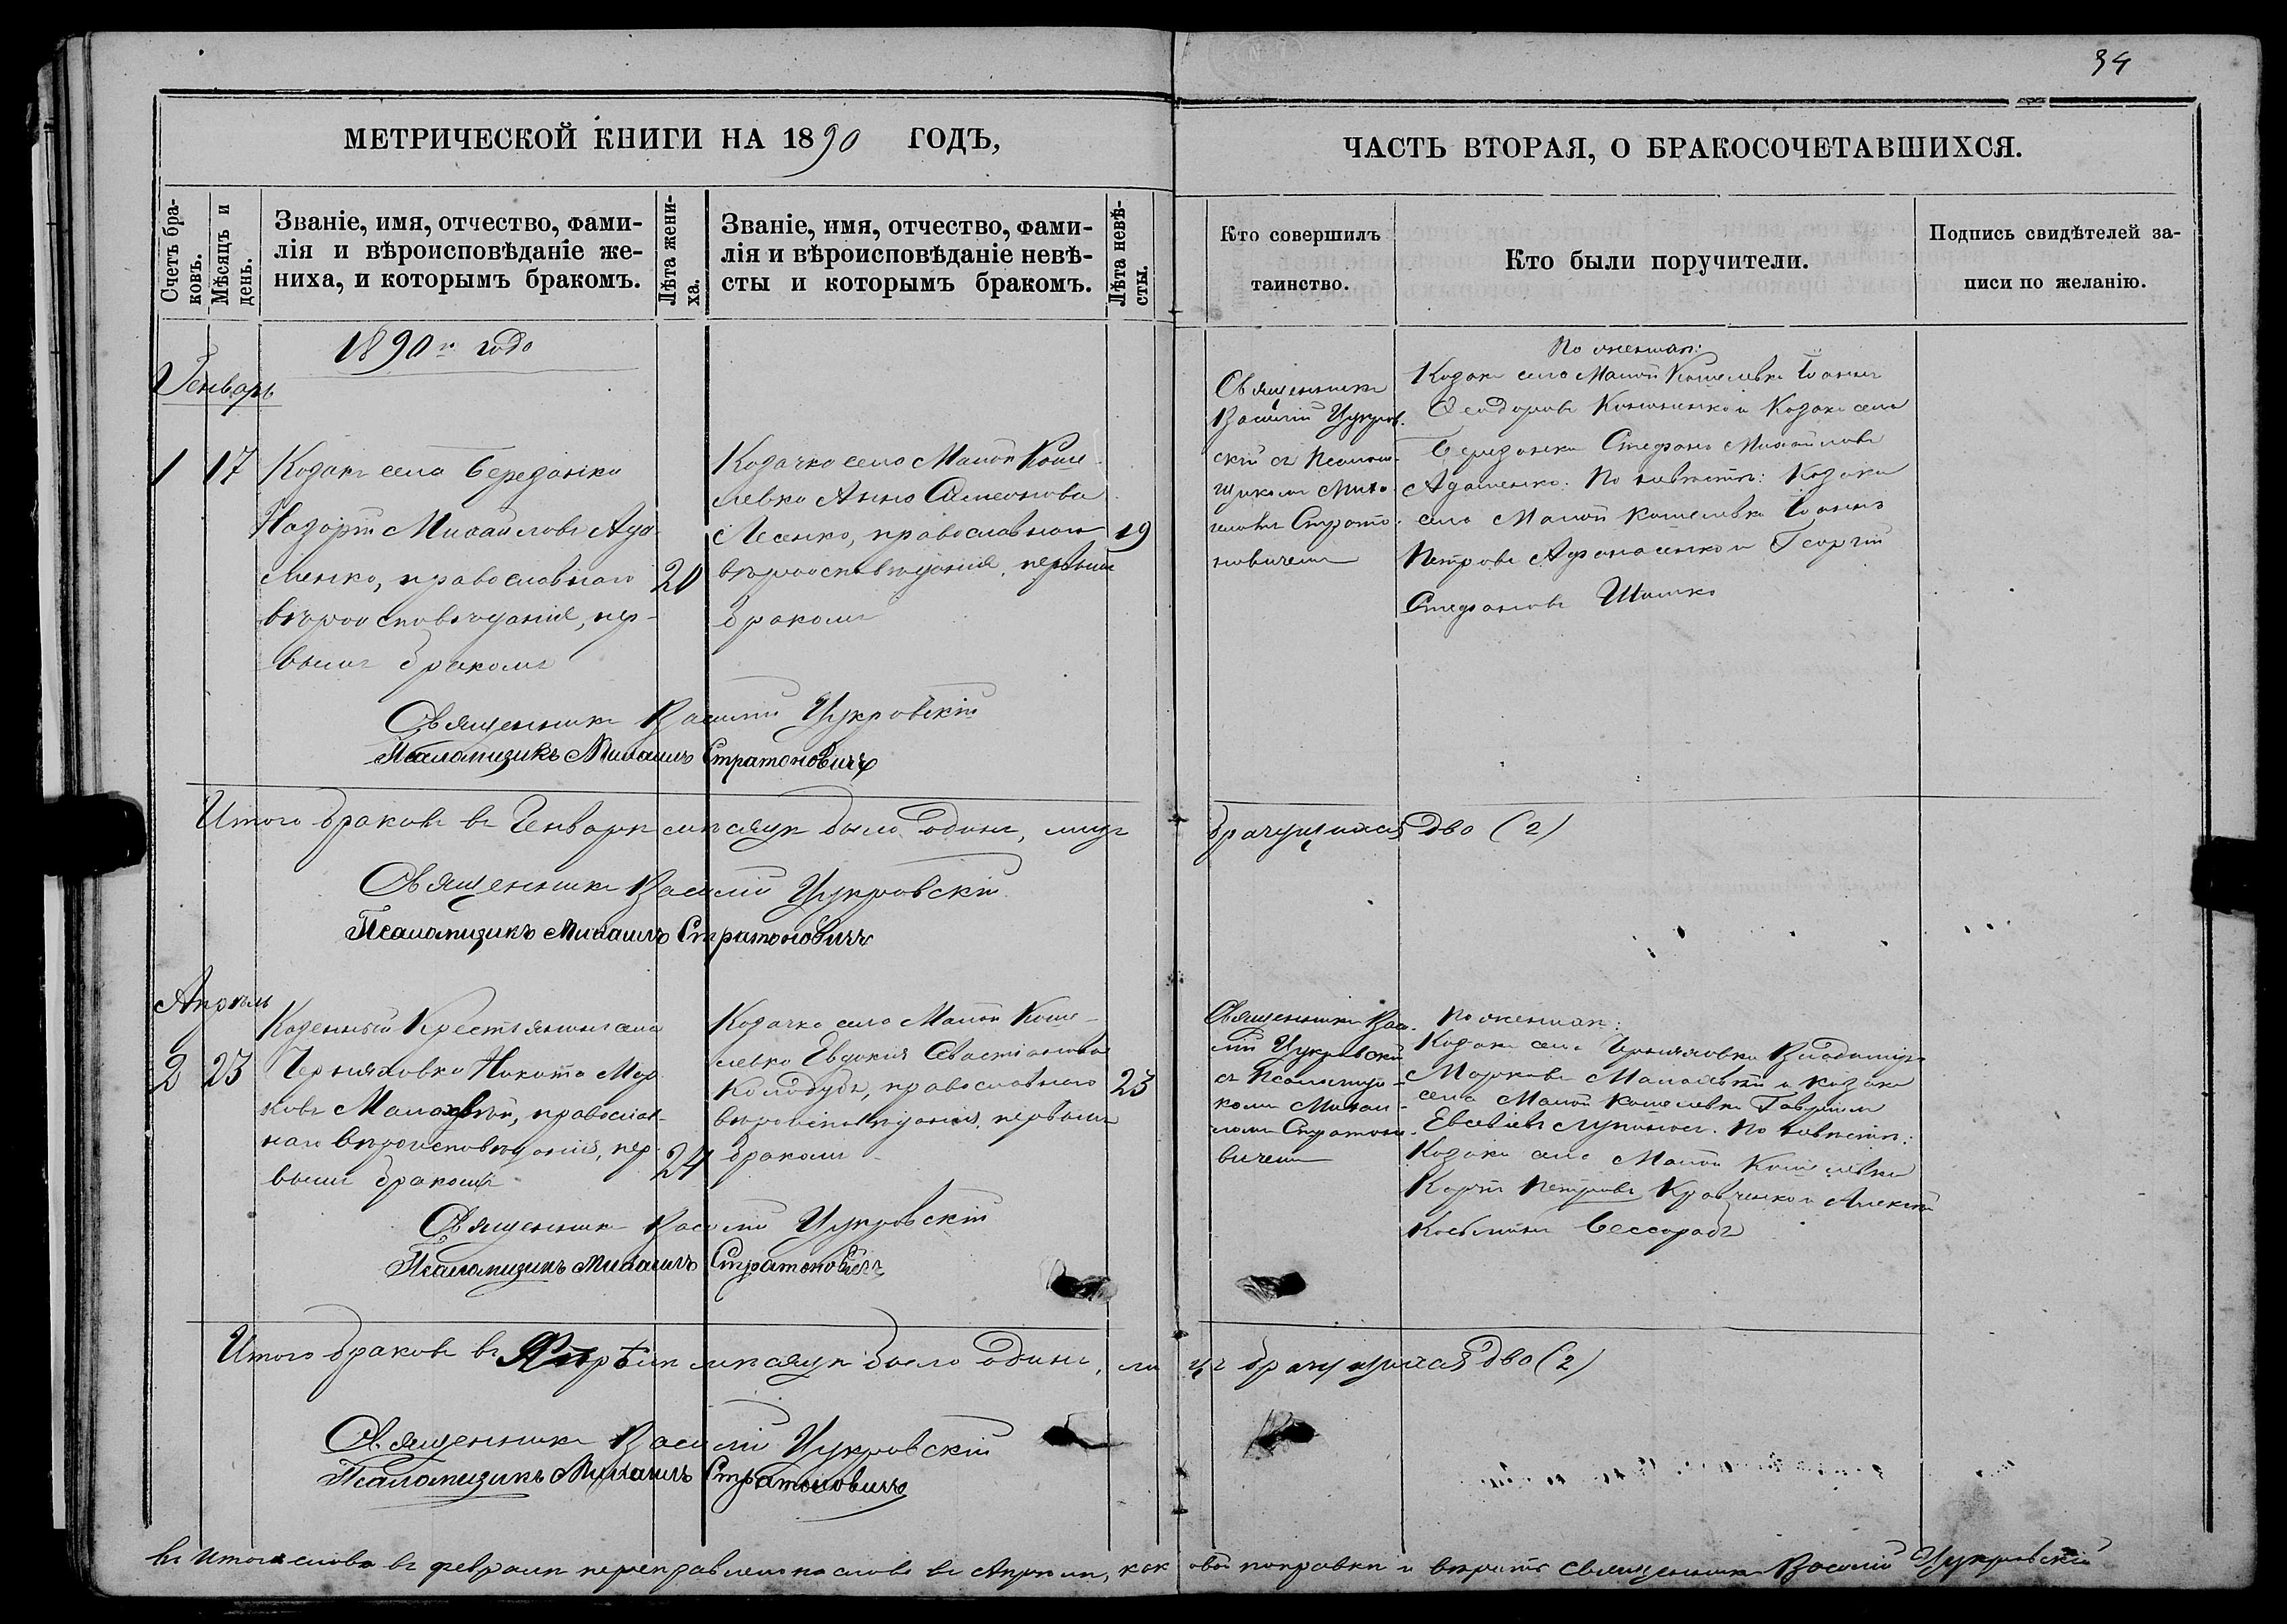 34
МЕТРИЧЕСКОЙ КНИГИ НА 1890 ГОДЪ,
ЧАСТЬ ВТОРАЯ, О БРАКОСОЧЕТАВШИХСЯ.
Счетъ бра-
ковъ.
Мѣсяцъ и
день.
Званіе, имя, отчество, фами-
лія и вѣроисповѣданіе же-
ниха, и которымъ бракомъ.
Лѣта жени-
ха.
Званіе, имя, отчество, фами-
лія и вѣроисповѣданіе невѣ-
сты и которымъ бракомъ.
Лѣта невѣ-
сты.
Кто совершилъ
таинство.
Кто были поручители.
Подпись свидѣтелей за-
писи по желанію.
1890го года
Генварь
1
17
Козакъ села Березанки
Назарій Михаиловъ Ада-
менко, православнаго
вѣроисповѣданія, пер-
вымъ бракомъ
20
Козачка села Малой Коше-
левки Анна Симеонова
Лесенко, православнаго
вѣроисповѣданія, первымъ
бракомъ
19
Священникъ
Василій Цукров-
скій съ Псалом-
щикомъ Миха-
иломъ Страто-
новичемъ
По женихѣ:
Козакъ села Малой Кошелевки Іоаннъ
Ѳеодоровъ Кононенко и Козакъ села
Березанки Стефанъ Михаиловъ
Адаменко. По невѣстѣ: Козаки
села Малой Кошелевки Іоаннъ
Петровъ Афанасенко и Георгій
Стефановъ Шишко
Священникъ Василій Цукровскій
Псаломщикъ Михаилъ Стратоновичъ
Итого браковъ въ Генварѣ мѣсяцѣ было одинъ, лицъ брачущихся два (2)
Священникъ Василій Цукровскій
Псаломщикъ Михаилъ Стратоновичъ
Апрѣль
2
23
Казенный Крестьянинъ села
Черняховки Никита Мар-
ковъ Малахвѣй, православ-
наго вѣроисповѣданія, пер-
вымъ бракомъ
24
Козачка села Малой Коше-
левки Евдокія Севастіанова
Колобудъ, православнаго
вѣроисповѣданія, первымъ
бракомъ
23
Священникъ Васи-
лій Цукровскій
съ Псаломщи-
комъ Михаи-
ломъ Стратоно-
вичемъ
По женихѣ:
Козакъ села Черняховки Владиміръ
Марковъ Малахвѣй и козакъ
села Малой Кошелевки Гавріилъ
Евсевіевъ Лупиносъ. По невѣстѣ:
Козаки села Малой Кошелевки
Карпъ Петровъ Кравченко и Алексѣй
Косьминъ Бессарабъ
Священникъ Василій Цукровскій
Псаломщикъ Михаилъ Стратоновичъ
Итого браковъ въ Апрѣлѣ мѣсяцѣ было одинъ, лицъ брачущихся два (2)
Священникъ Василій Цукровскій
Псаломщикъ Михаилъ Стратоновичъ
въ Итогѣ слово въ февралѣ переправлено на слово въ Апрѣлѣ, каковой поправки и вѣрить Священникъ Василій Цукровскій